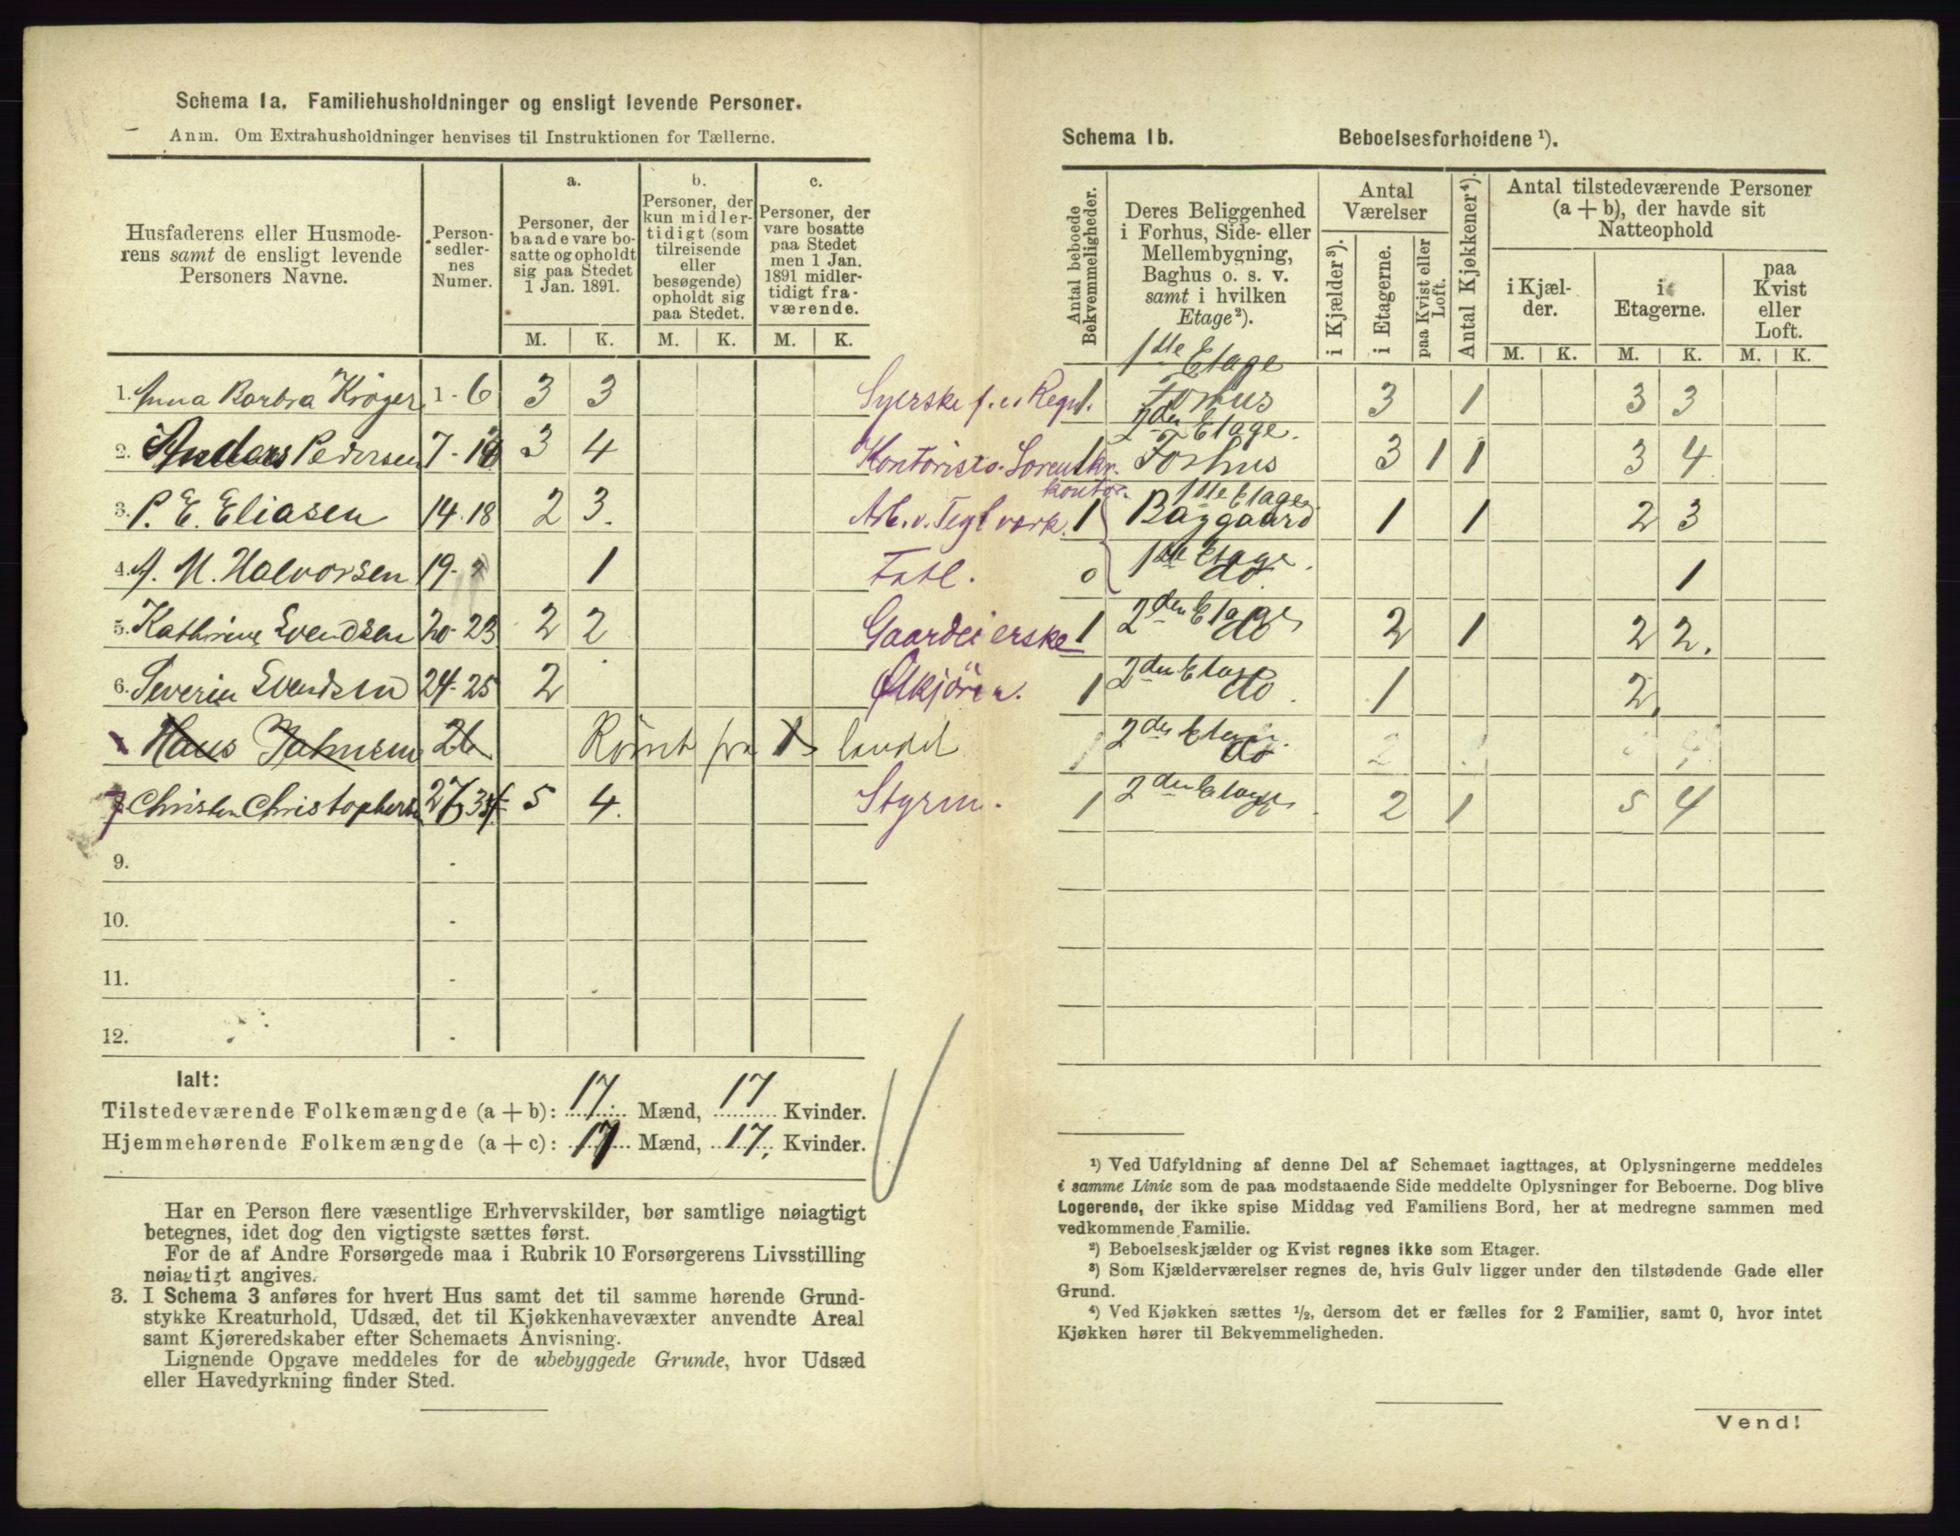 Schema 1a. Familiehusholdninger og ensligt levende Personer.
Anm. Om Extrahusholdninger henvises til Instruktionen for Tællerne.
Husfaderens eller Husmode-
rens samt de ensligt levende
Personers Navne.
Person-
sedler-
nes
Numer.
a.
Personer, der
baade vare bo-
satte og opholdt
sig paa Stedet
1 Jan. 1891.
b.
Personer, der
kun midler-
tidigt (som
tilreisende
eller
besøgende)
opholdt sig
paa Stedet.
c.
Personer, der
vare bosatte
paa Stedet
men 1 Jan.
1891 midler-
tidigt fra-
værende.
M. K. M. K. M. K.
1. Anna Barbra Krøger 1 - 6 3 3 Syerske f. e. Regn.
2. Anders Pedersen 7 - 13 3 4 Kontorist o. Sorenskr. kontor.
3. P. E. Eliasen 14 - 18 2 3. Arb. v. Teglværk.
4. A. M. Halvorsen 19 - 1 Fatl.
5. Kathrine Svendsen 20 - 23 2 2 Gaardeierske
6. Severin Svendsen 24 - 25 2 Ølkjörer.
Hans 26 Rømt fra landet
7 Christen Christophersen 27 5 4. Styrm.
9. -
10. -
11. -
12. -
Ialt:
Tilstedeværende Folkemængde (a + b): 17 Mænd, 17 Kvinder.
Hjemmehørende Folkemængde (a + c): 17 Mænd, 17 Kvinder.
Har en Person flere væsentlige Erhvervskilder, bør samtlige nøiagtigt
betegnes, idet dog den vigtigste sættes først.
For de af Andre Forsørgede maa i Rubrik 10 Forsørgerens Livsstilling
nøiagtigt angives.
3. I Schema 3 anføres for hvert Hus samt det til samme hørende Grund-
stykke Kreaturhold, Udsæd, det til Kjøkkenhavevæxter anvendte Areal
samt Kjøreredskaber efter Schemaets Anvisning.
Lignende Opgave meddeles for de ubebyggede Grunde, hvor Udsæd
eller Havedyrkning finder Sted.
Schema 1b. Beboelsesforholdene ¹).
Antal beboede
Bekvemmeligheder.
Deres Beliggenhed
i Forhus, Side- eller
Mellembygning,
Baghus o. s. v.
samt i hvilken
Etage²).
Antal
Værelser
i Kjælder³).
i Etagerne.
paa Kvist eller
Loft.
Antal Kjøkkener⁴).
Antal tilstedeværende Personer
(a + b), der havde sit
Natteophold
i Kjæl-
der.
i
Etagerne.
paa
Kvist
eller
Loft.
M. K. M. K. M. K.
1 1ste Etage Forhus 3 1 3 3
1 2den Etage. Forhus 3 1 1 3 4
1 1ste Etage Baggaard 1 1 2 3
0 1ste Etage. do 1
1 2den Etage do 2 1 2 2.
1 2den Etage do. 1 2.
1 2den Etage. do 2
1 2den Etage 2 1 5 4
¹) Ved Udfyldning af denne Del af Schemaet iagttages, at Oplysningerne meddeles
i samme Linie som de paa modstaaende Side meddelte Oplysninger for Beboerne. Dog blive
Logerende, der ikke spise Middag ved Familiens Bord, her at medregne sammen med
vedkommende Familie.
²) Beboelseskjælder og Kvist regnes ikke som Etager.
³) Som Kjælderværelser regnes de, hvis Gulv ligger under den tilstødende Gade eller
Grund.
⁴) Ved Kjøkken sættes ½, dersom det er fælles for 2 Familier, samt 0, hvor intet
Kjøkken hører til Bekvemmeligheden.
Vend!